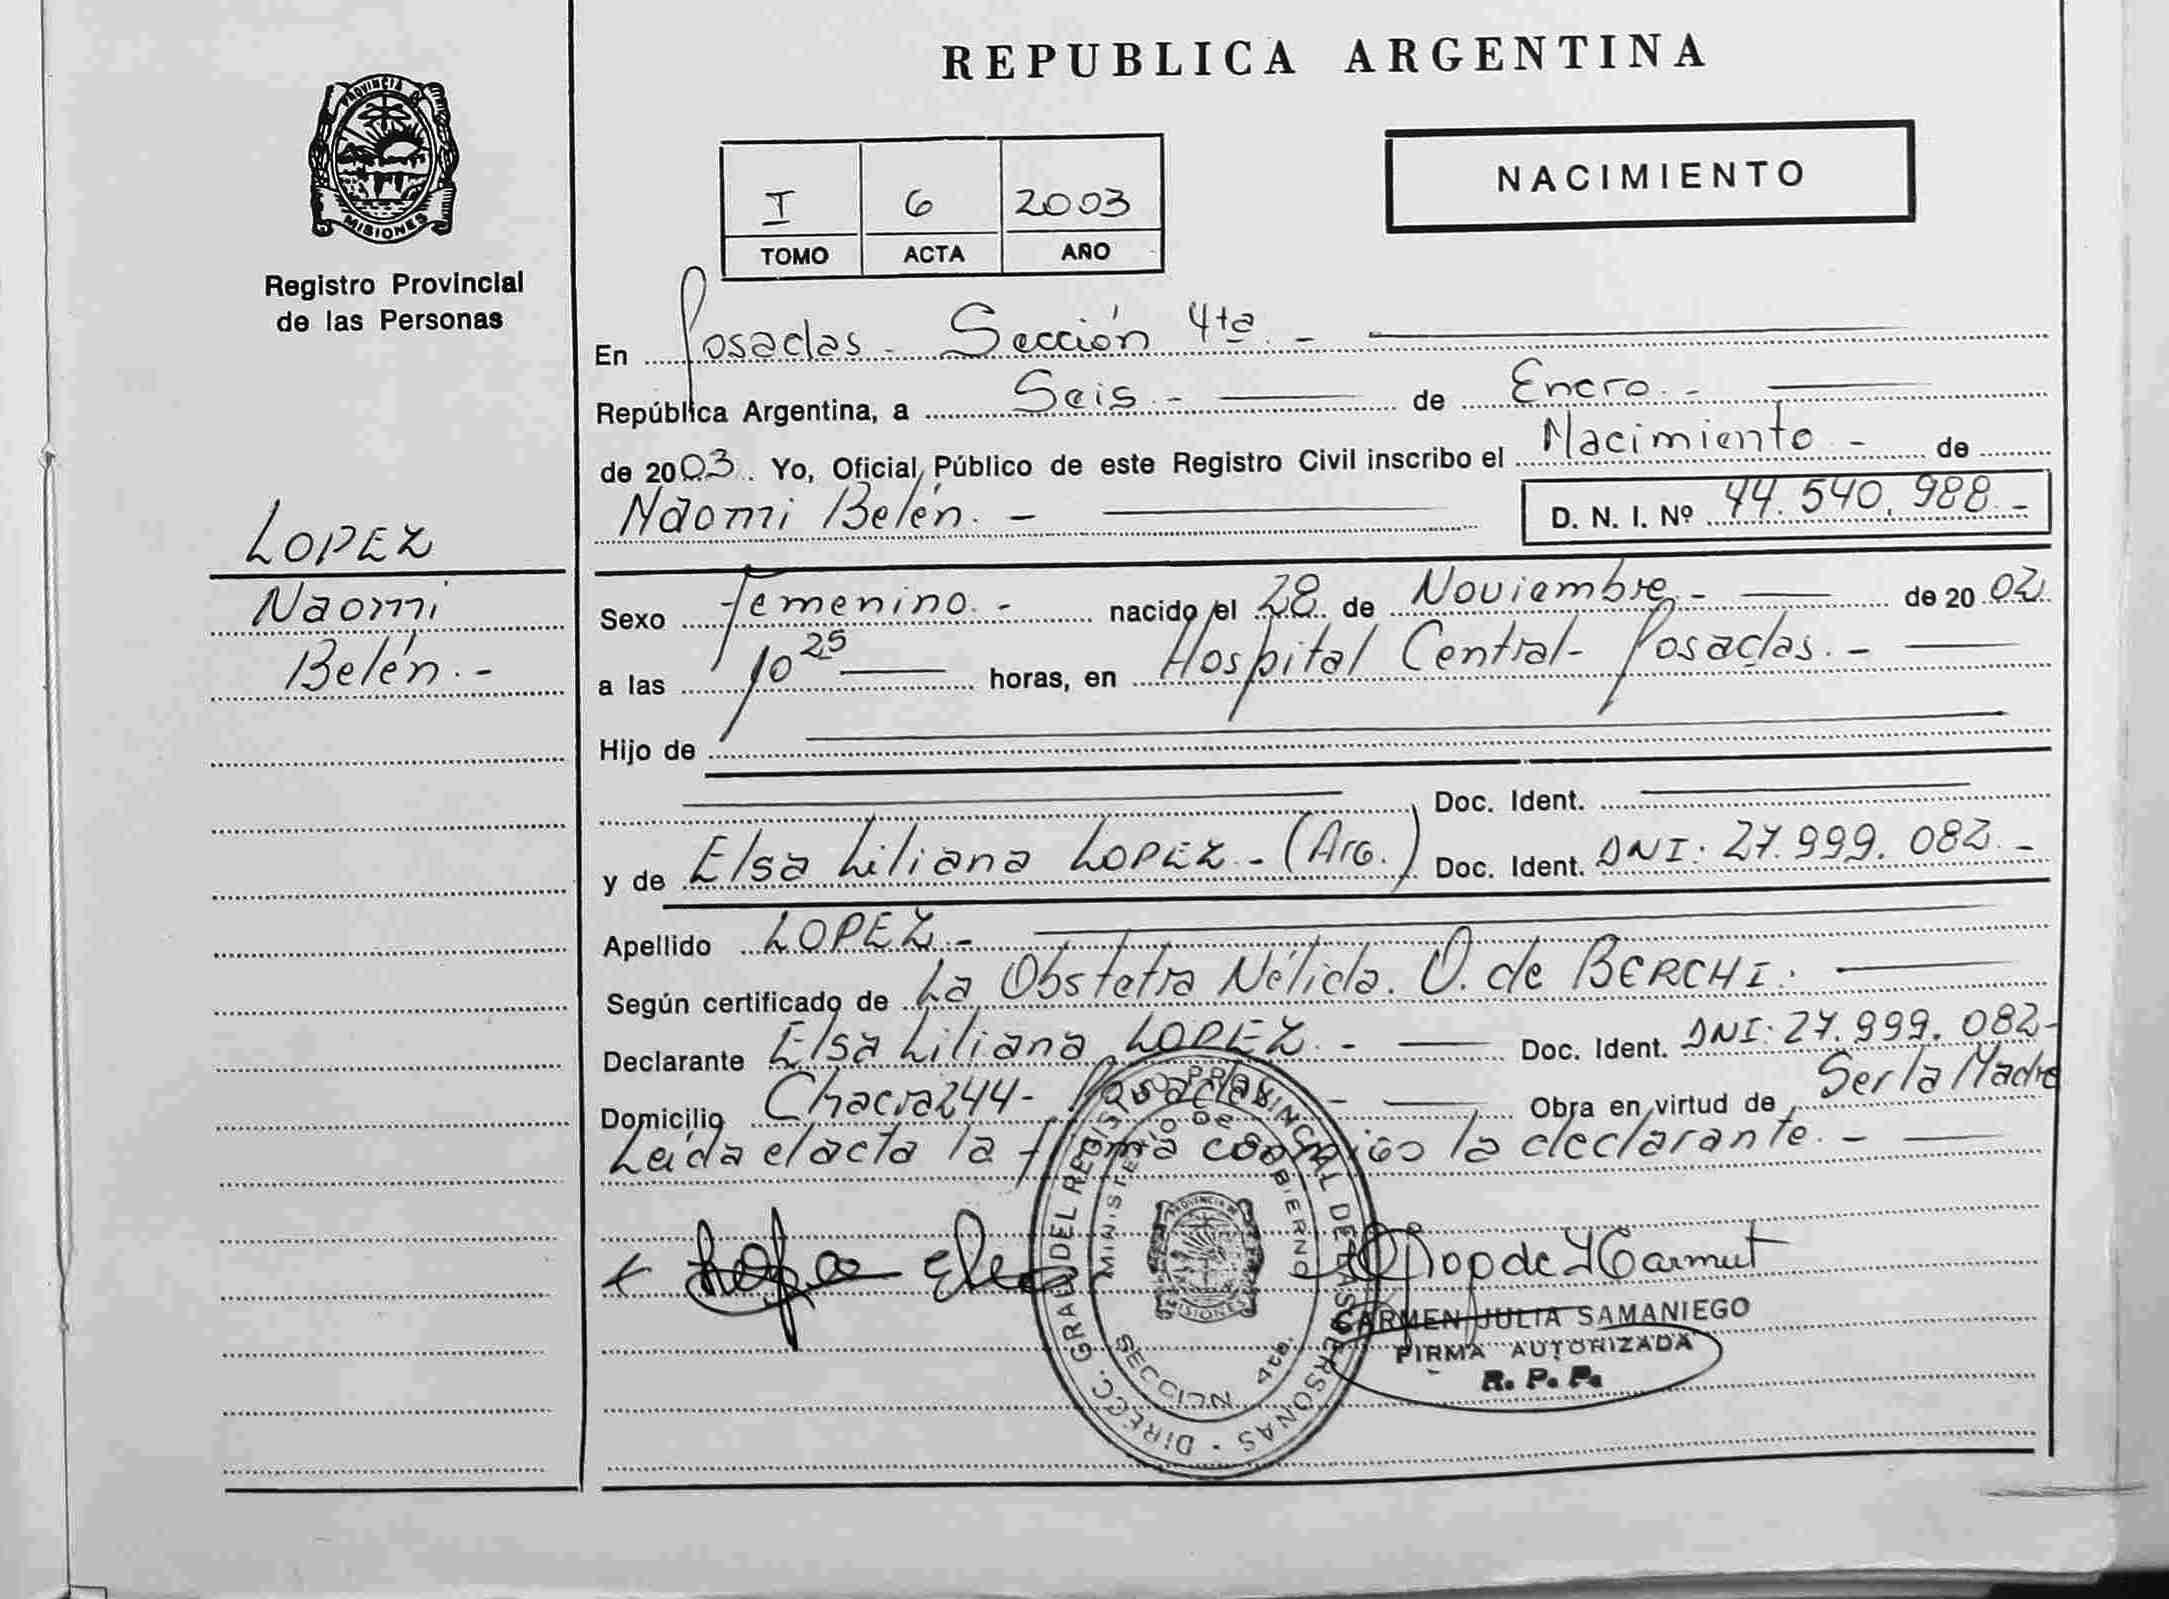 REPUBLICA ARGENTINA
PROVINCIA DE MISIONES
Registro Provincial
de las Personas
NACIMIENTO
I 6 2003
TOMO ACTA AÑO
En Posadas - Sección 4ta. -
República Argentina, a Seis. - de Enero. -
de 2003. Yo, Oficial Público de este Registro Civil inscribo el Nacimiento - de
Naomi Belén. - D. N. I. Nº 44.540.988.-
LOPEZ
Naomi
Belén. -
Sexo femenino. - nacido el 28 de Noviembre. - de 2002
a las 10 25 horas, en Hospital Central - Posadas. -
Hijo de
Doc. Ident.
y de Elsa Liliana LOPEZ. - (Arg.) Doc. Ident. DNI: 27.999.082. -
Apellido LOPEZ. -
Según certificado de La Obstetra Nélida. O. de BERCHI.
Declarante Elsa Liliana LOPEZ. - Doc. Ident. DNI: 27.999.082-
Domicilio Chacra 244 - Posadas - Obra en virtud de Ser la Madre
Leída el acta la firma conmigo la declarante. -
DIRECC. GRAL DEL REGISTRO PROVINCIAL DE LAS PERSONAS
MINISTERIO DE GOBIERNO
PROVINCIA DE MISIONES
SECCION 4ta.
CARMEN JULIA SAMANIEGO
FIRMA AUTORIZADA
R. P. P.